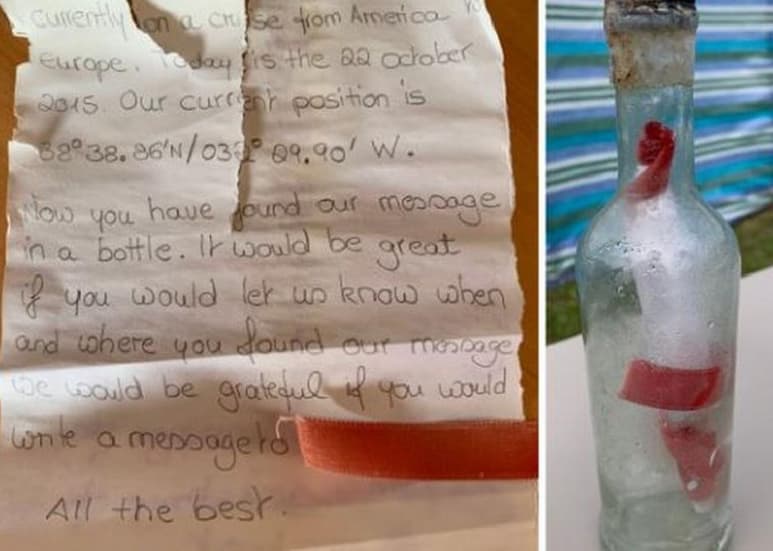 currently on a cruise from America
Europe. Today is the 22 october
2015. Our current position is
38°38.86'N/032° 09.90' W.
Now you have found our message
in a bottle. It would be great
if you would let us know when
and where you found our message
We would be grateful if you would
write a message to
All the best.